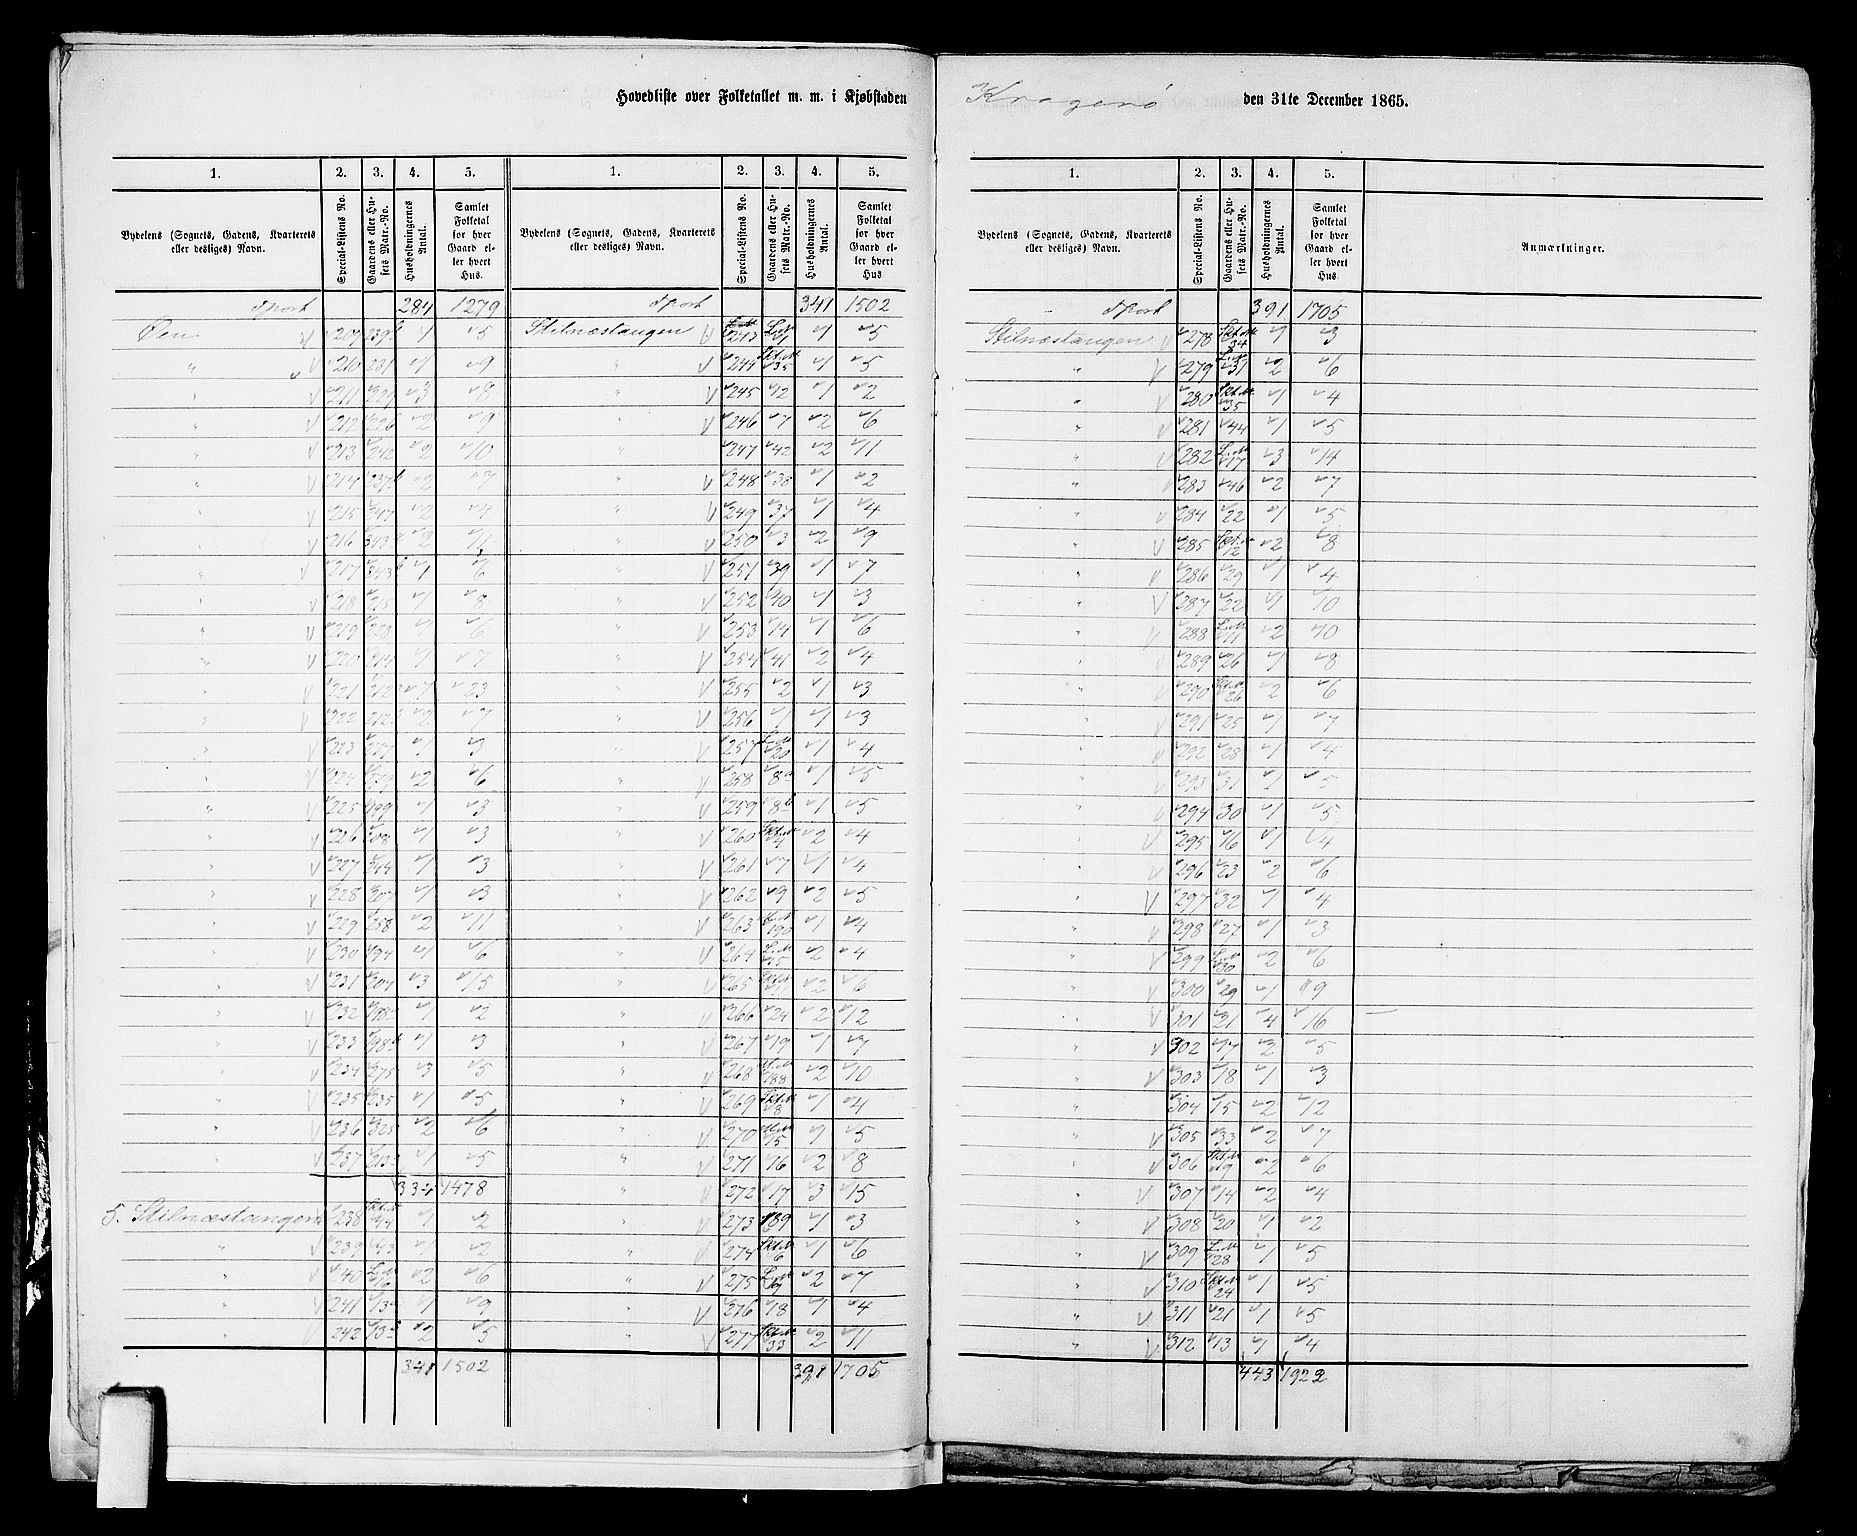 Hovedliste over Folketallet m. m. i Kjøbstaden Kragerø den 31te December 1865.
1. 2. 3. 4. 5. 1. 2. 3. 4. 5.
Bydelens (Sognets, Gadens, Kvarterets eller desliges) Navn. Special-Listens No. Gaardens eller Husets Matr.-No. Husholdningernes Antal. Samlet Folketal for hver Gaard eller hvert Hus.
Bydelens (Sognets, Gadens, Kvarterets eller desliges) Navn. Special-Listens No. Gaardens eller Husets Matr.-No. Husholdningernes Antal. Samlet Folketal for hver Gaard eller hvert Hus.
284 1279
Øen 209 239 1 5
" 210 231 1 9
" 211 229 3 8
" 212 226 2 9
" 213 242 2 10
" 214 237 2 7
" 215 247 2 4
" 216 343 2 11
" 217 343 1 6
" 218 215 1 8
" 219 228 1 6
" 220 214 1 7
" 221 212 7 23
" 222 212 2 7
" 223 1 3
" 224 2 6
" 225 199 1 3
" 226 208 1 3
" 227 244 1 3
" 228 207 1 3
" 229 258 2 11
" 230 194 1 6
" 231 204 3 15
" 232 198 1 2
" 233 198 1 3
" 234 275 3 5
" 235 235 1 5
" 236 325 2 6
" 237 213 1 5
334 1478
5. Stilnæstangen 238 1 2
" 239 43 1 2
" 40 2 6
" 241 13 1 9
" 242 13 2 5
341 1502
341 1502
Stilnæstangen 243 1 5
" 244 35 1 5
" 245 12 1 2
" 246 7 2 6
" 247 42 2 11
" 248 38 1 2
" 249 37 1 4
" 250 3 2 9
" 251 39 1 7
" 252 40 1 3
" 253 14 1 6
" 254 41 2 4
" 255 2 1 3
" 256 1 1 3
" 257 20 1 4
" 258 8 1 5
" 259 8 1 5
" 260 4 2 4
" 261 7 1 4
" 262 9 2 5
" 263 190 1 4
" 264 2 4
" 265 2 6
" 266 24 2 12
" 267 19 1 7
" 268 188 2 10
" 269 8 1 4
" 270 15 1 5
" 271 16 2 8
" 272 17 3 15
" 273 189 1 3
" 274 6 1 6
" 275 19 2 7
" 276 18 1 4
" 277 33 2 11
391 1705
1. 2. 3. 4. 5.
Bydelens (Sognets, Gadens, Kvarterets eller desliges) Navn. Special-Listens No. Gaardens eller Husets Matr.-No. Husholdningernes Antal. Samlet Folketal for hver Gaard eller hvert Hus. Anmærkninger.
391 1705
Stilnæstangen 278 34 1 3
" 279 31 2 6
" 280 35 1 4
" 281 44 1 5
" 282 17 3 14
" 283 46 2 7
" 284 22 1 5
" 285 12 2 8
" 286 29 1 4
" 287 22 1 10
" 288 11 2 10
" 289 26 1 8
" 290 26 2 6
" 291 25 1 7
" 292 28 1 4
" 293 31 1 5
" 294 30 1 5
" 295 16 1 4
" 296 23 2 6
" 297 32 1 4
" 298 27 1 3
" 299 30 2 6
" 300 29 1 9
" 301 21 4 16
" 302 17 2 5
" 303 18 1 3
" 304 15 2 12
" 305 33 2 7
" 306 19 2 6
" 307 14 2 4
" 308 20 1 2
" 309 28 1 5
" 310 24 1 5
" 311 21 1 5
" 312 13 1 4
443 1922